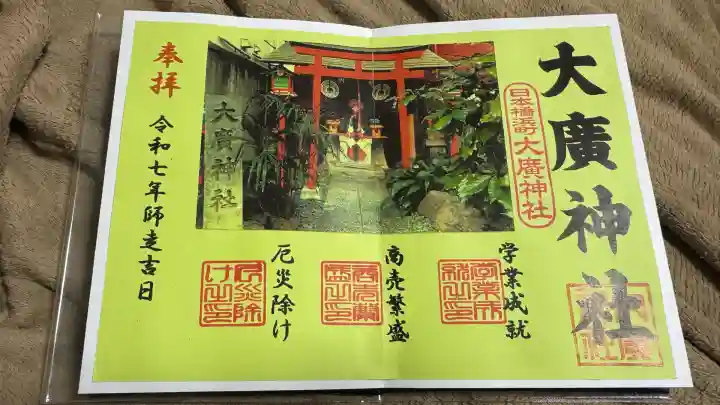 大廣神社
日本橋浜町
大廣神社
大廣神社
学業成就
商売繁盛
厄災除け
奉拝
令和七年師走吉日